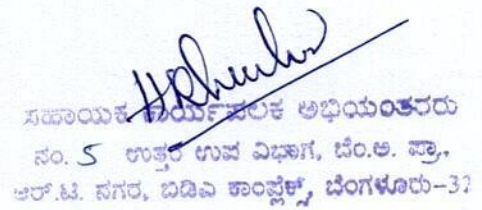 ಸಹಾಯಕ ಕಾರ್ಯಪಾಲಕ ಅಭಿಯಂತರರು
ನಂ. 5 ಉತ್ತರ ಉಪ ವಿಭಾಗ, ಬೆಂ.ಅ. ಪ್ರಾ.,
ಆರ್.ಟಿ. ನಗರ, ಬಿಡಿಎ ಕಾಂಪ್ಲೆಕ್ಸ್, ಬೆಂಗಳೂರು-32